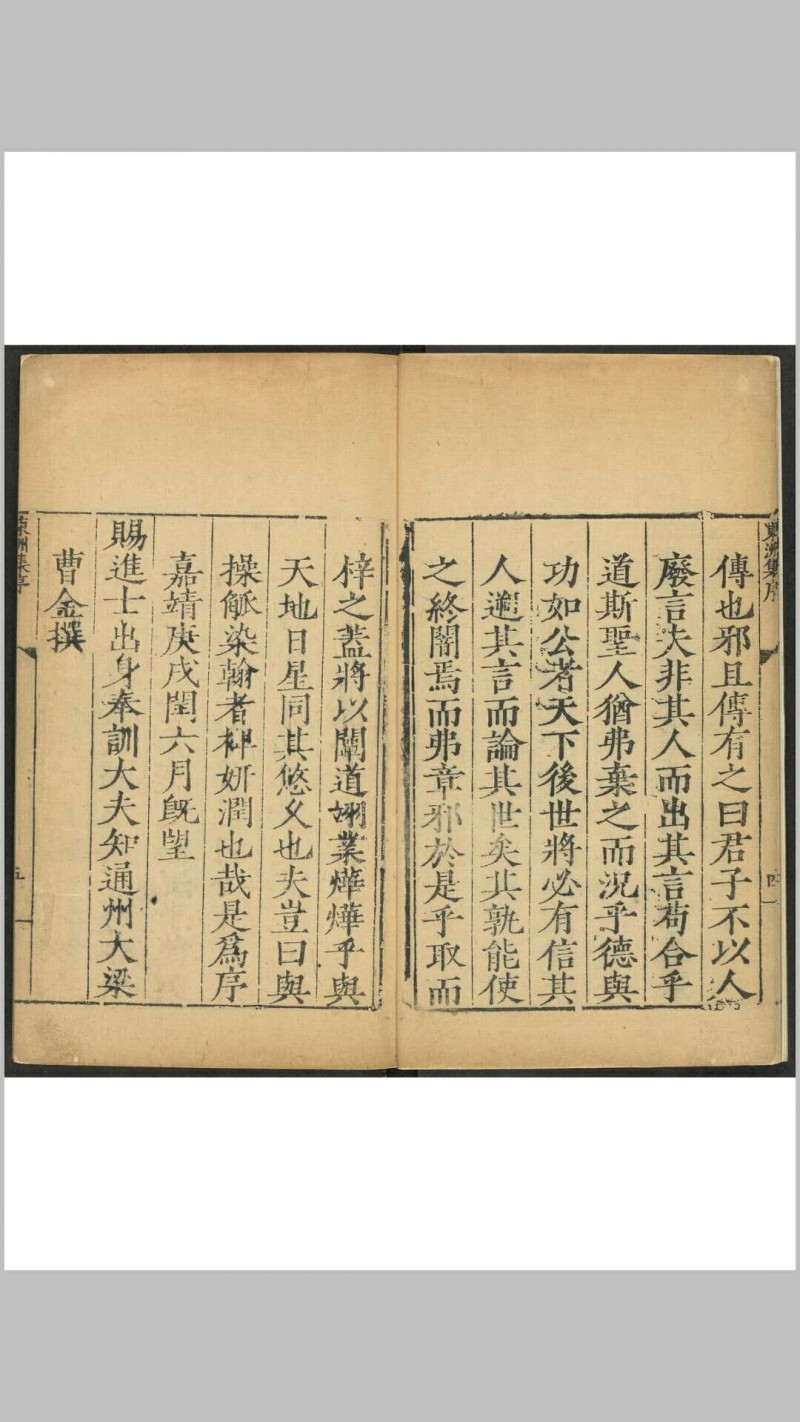 東洲集序
四
傳也邪且傳有之曰君子不以人
廢言夫非其人而出其言苟合乎
道斯聖人猶弗棄之而況乎德與
功如公者天下後世將必有信其
人遡其言而論其世矣其孰能使
之終闇焉而弗章邪於是乎取而
梓之蓋將以闡道翊業燁燁乎與
天地日星同其悠久也夫豈曰與
操觚染翰者裨妍潤也哉是爲序
嘉靖庚戌閏六月旣望
賜進士出身奉訓大夫知通州大梁
曹金撰
東洲集序
五